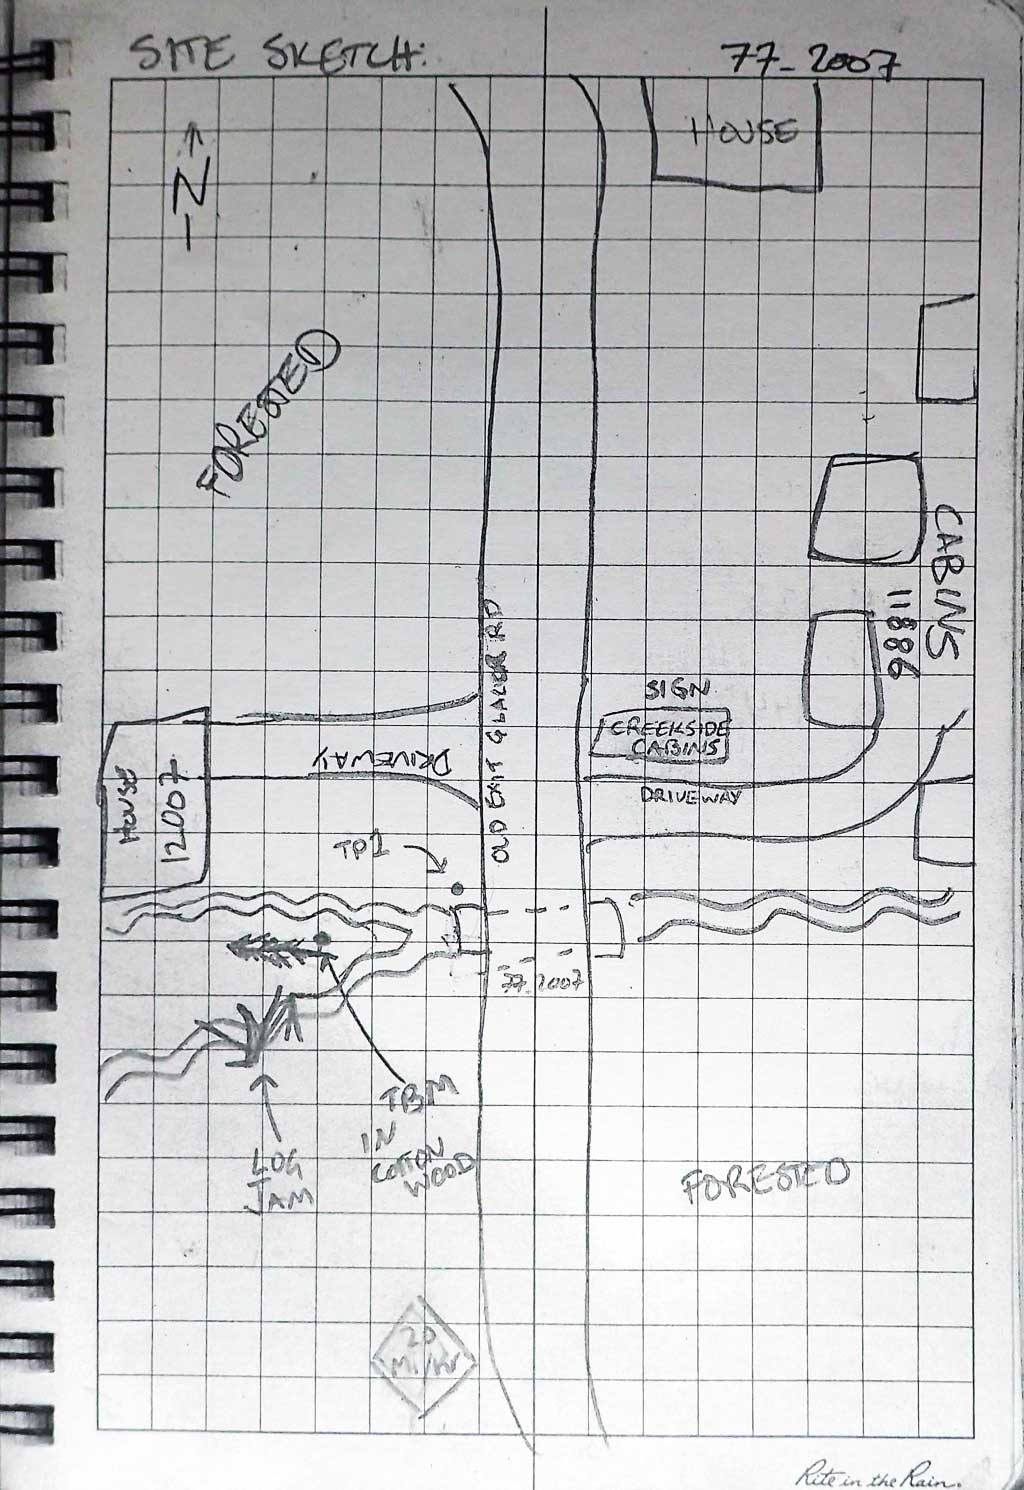 SITE SKETCH:
77_2007
N
HOUSE
FORESTED
CABINS
11886
OLD EXIT GLACIER RD
SIGN
CREEKSIDE
CABINS
DRIVEWAY
DRIVEWAY
HOUSE
12007
TP1
77_2007
TBM
IN
COTTON
WOOD
LOG
JAM
FORESTED
20
MI/HR
Rite in the Rain.